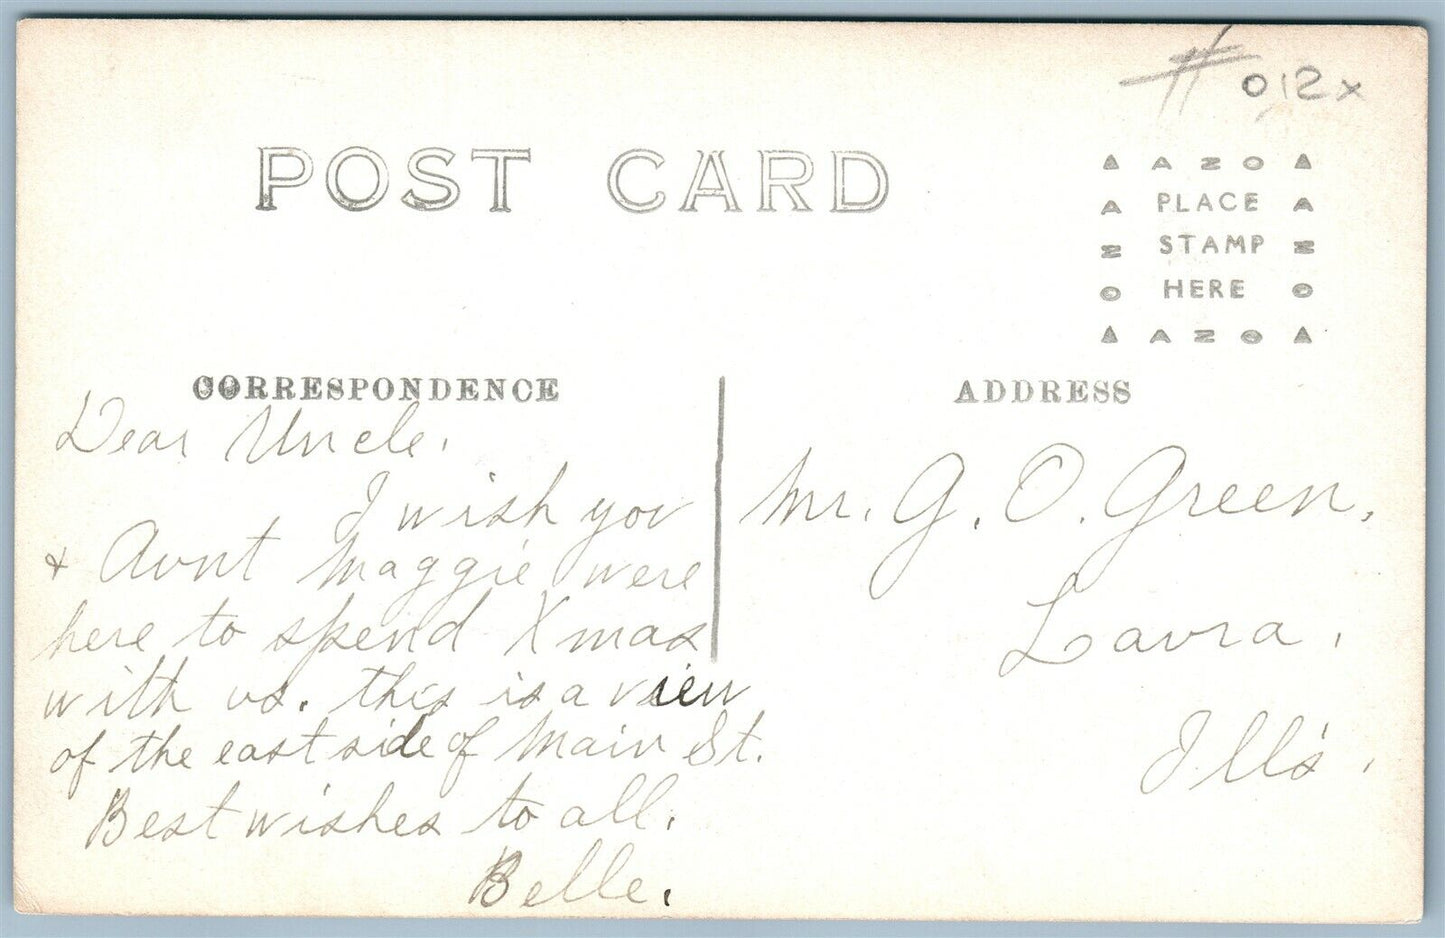 # 012x
POST CARD
▲ A Z O ▲
A PLACE A
Z STAMP Z
O HERE O
▲ A Z O ▲
CORRESPONDENCE
ADDRESS
Dear Uncle.
I wish you
+ Aunt Maggie were
here to spend Xmas
with us. this is a view
of the east side of Main St.
Best wishes to all.
Belle.
Mr. G. O. Green,
Laura,
Ills.